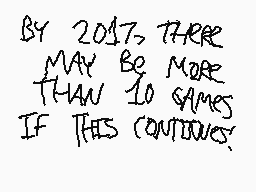 BY 2017, THERE
MAY BE MORE
THAN 10 GAMES
IF THIS CONTINUES!